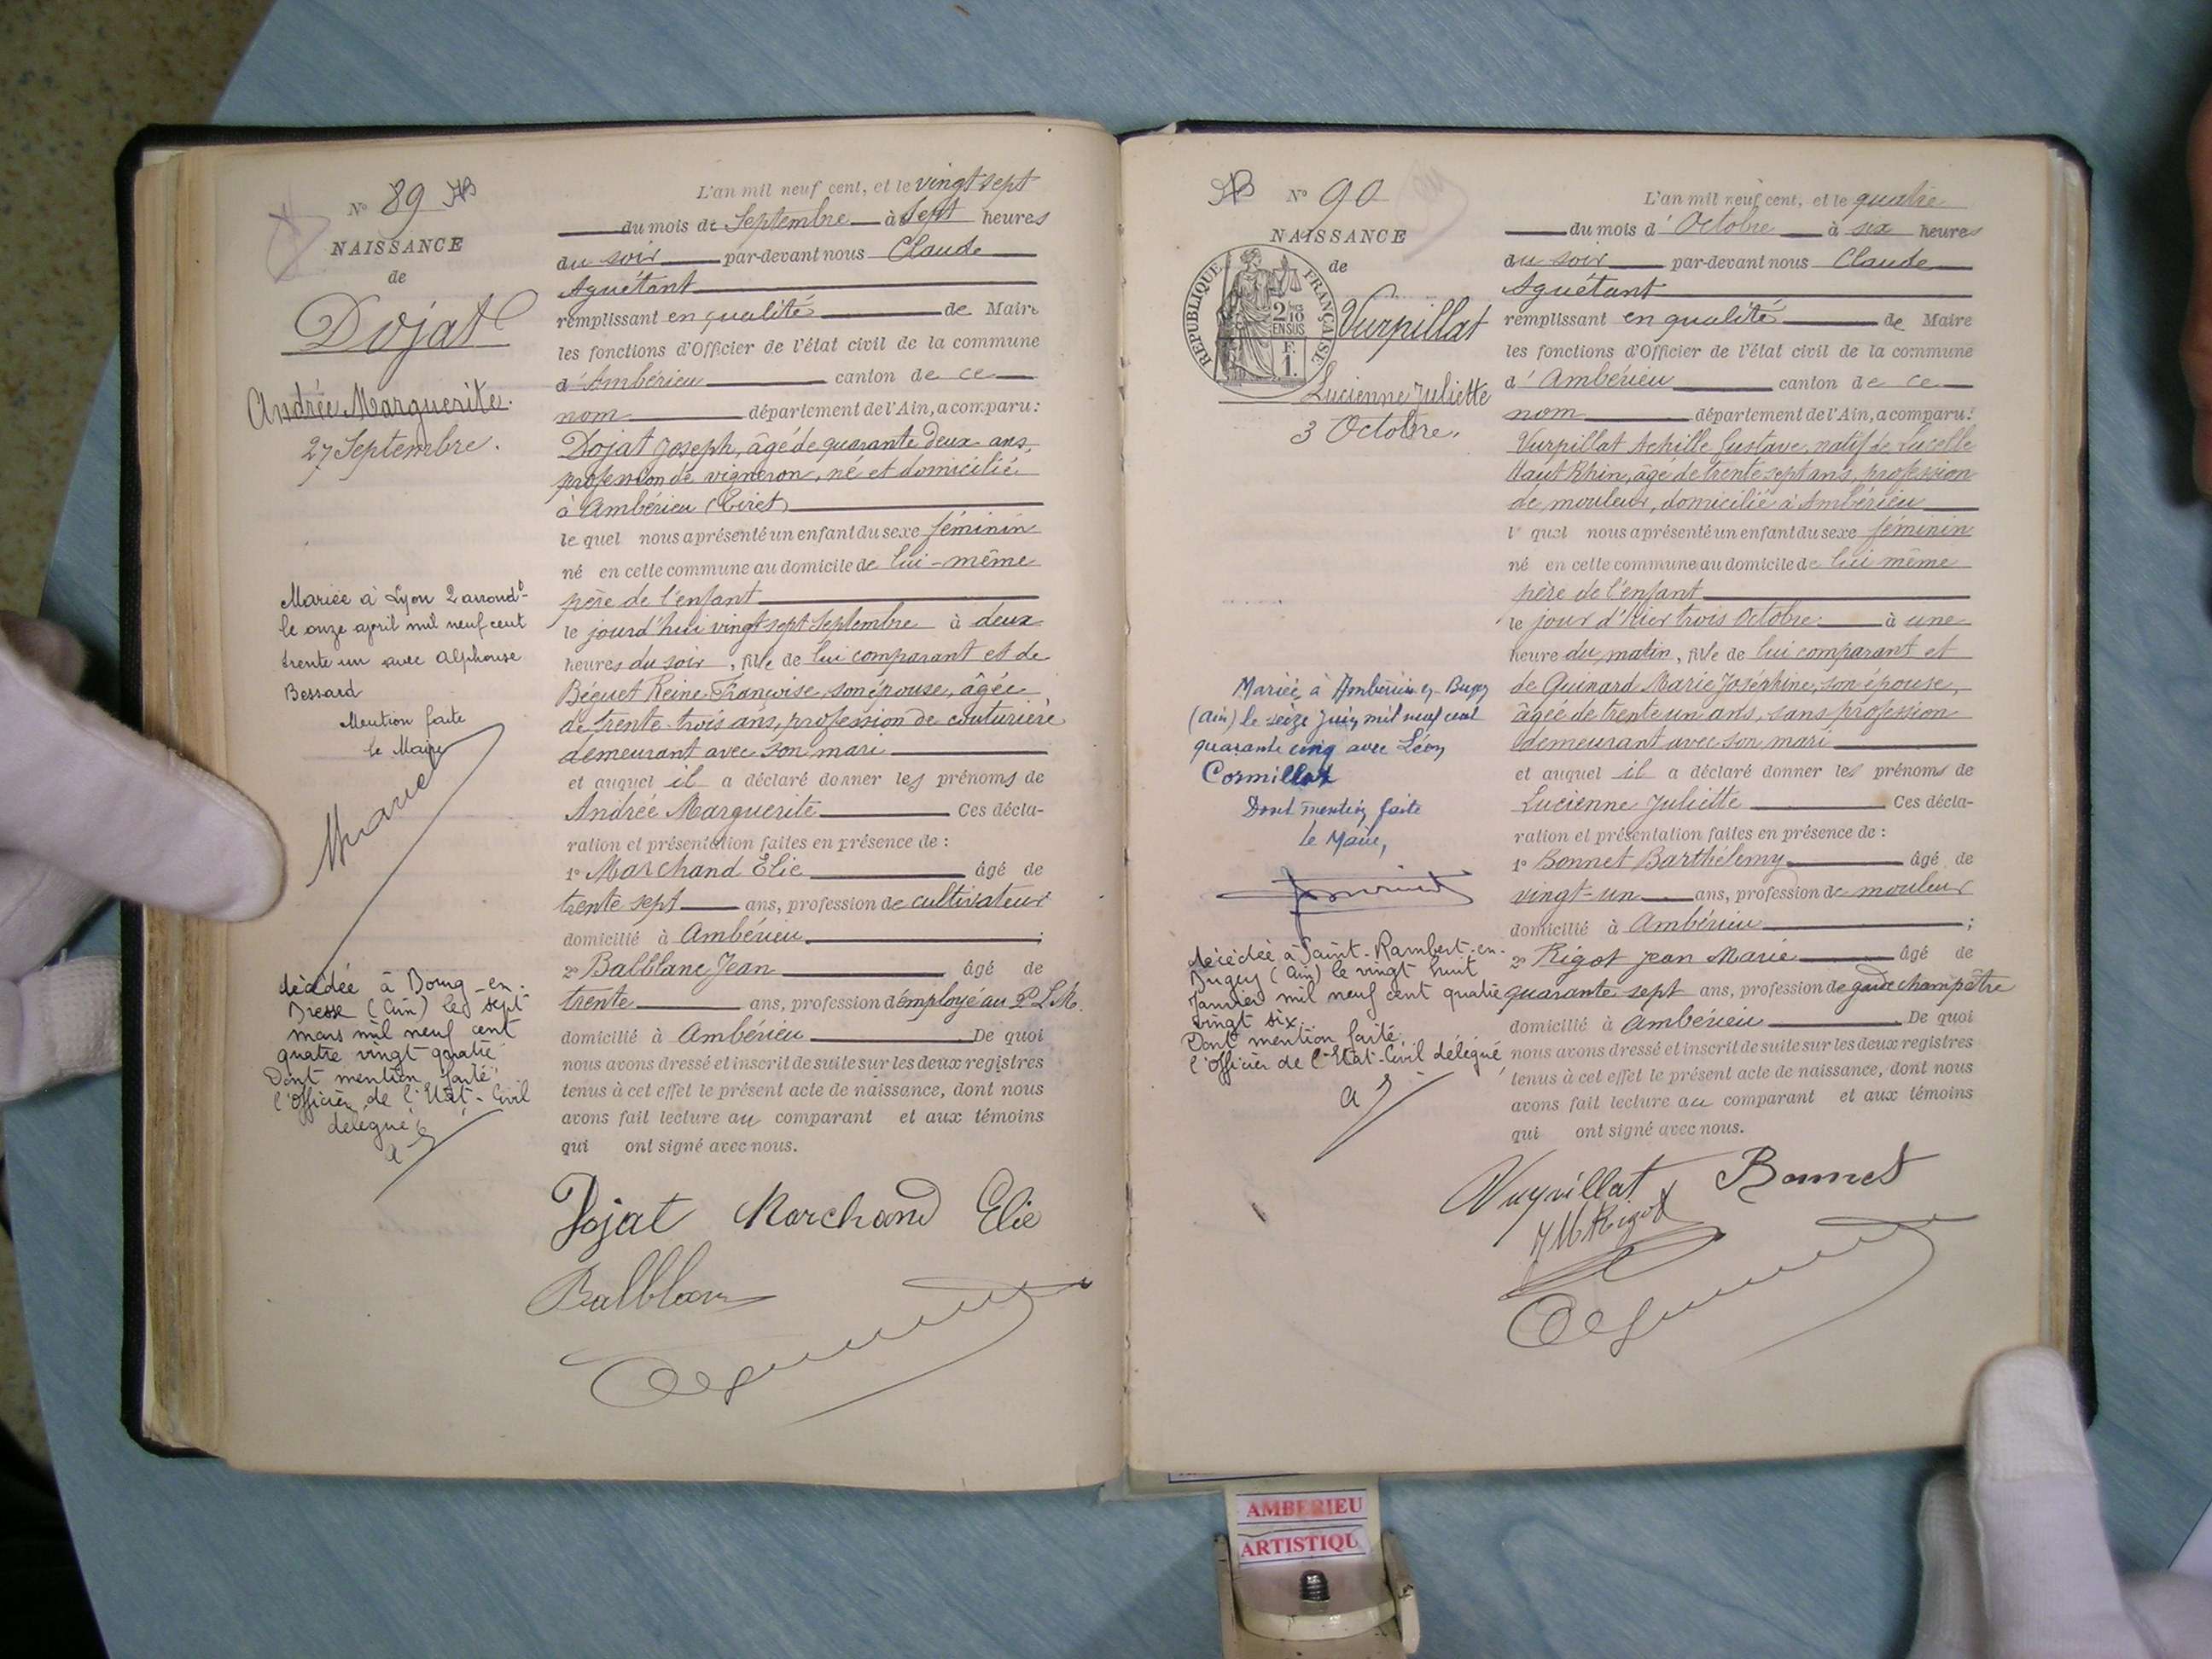 N° 89 AB
NAISSANCE
de
Dojat
Andrée Marguerite.
27 Septembre.
Mariée à Lyon 2 arrondt
le onze avril mil neuf cent
trente un avec Alphonse
Bessard
Mention faite
le Maire
décédée à Bourg-en-
Bresse (Ain) le sept
mars mil neuf cent
quatre vingt quatre
Dont mention faite
l'officier de l'Etat-Civil
délégué
L'an mil neuf cent, et le vingt sept
du mois de Septembre à sept heures
du soir par-devant nous Claude
Aguétant
remplissant en qualité de Maire
les fonctions d'Officier de l'état civil de la commune
d'Ambérieu canton de ce
nom département de l'Ain, a comparu:
Dojat Joseph, âgé de quarante deux ans,
profession de vigneron, né et domicilié
à Ambérieu (Tiret)
le quel nous a présenté un enfant du sexe féminin
né en cette commune au domicile de lui-même
père de l'enfant
le jourd'hui vingt sept Septembre à deux
heures du soir, fille de lui comparant et de
Béguet Reine Françoise, son épouse, âgée
de trente-trois ans, profession de couturière
demeurant avec son mari
et auquel il a déclaré donner les prénoms de
Andrée Marguerite Ces décla-
ration et présentation faites en présence de :
1° Marchand Elie âgé de
trente sept ans, profession de cultivateur
domicilié à Ambérieu ;
2° Balblanc Jean âgé de
trente ans, profession d'employé au P.L.M.
domicilié à Ambérieu. De quoi
nous avons dressé et inscrit de suite sur les deux registres
tenus à cet effet le présent acte de naissance, dont nous
avons fait lecture au comparant et aux témoins
qui ont signé avec nous.
Dojat Marchand Elie
Balblanc
AB N° 90
NAISSANCE
de
REPUBLIQUE FRANÇAISE
2/10
EN SUS
F.
1.
Vurpillat
Lucienne Juliette
3 Octobre.
Mariée à Ambérieu-en-Bugey
(Ain) le seize juin mil neuf cent
quarante cinq avec Léon
Cormillot
Dont mention faite
Le Maire,
décédée à Saint-Rambert-en-
Bugey (Ain) le vingt huit
Janvier mil neuf cent quatre
vingt six.
Dont mention faite,
l'officier de l'Etat-Civil délégué
L'an mil neuf cent, et le quatre
du mois d'Octobre à six heures
du soir par-devant nous Claude
Aguétant
remplissant en qualité de Maire
les fonctions d'Officier de l'état civil de la commune
d'Ambérieu canton de ce
nom département de l'Ain, a comparu:
Vurpillat Achille Gustave, natif de Lucelle
Haut Rhin, âgé de trente sept ans, profession
de mouleur, domicilié à Ambérieu
le quel nous a présenté un enfant du sexe féminin
né en cette commune au domicile de lui même
père de l'enfant
le jour d'hier trois Octobre à une
heure du matin, fille de lui comparant et
de Guinard Marie Joséphine, son épouse,
âgée de trente un ans, sans profession
demeurant avec son mari
et auquel il a déclaré donner les prénoms de
Lucienne Juliette Ces décla-
ration et présentation faites en présence de :
1° Bonnet Barthélemy âgé de
vingt-un ans, profession de mouleur
domicilié à Ambérieu ;
2° Rigot Jean Marie âgé de
quarante sept ans, profession de garde champêtre
domicilié à Ambérieu. De quoi
nous avons dressé et inscrit de suite sur les deux registres
tenus à cet effet le présent acte de naissance, dont nous
avons fait lecture au comparant et aux témoins
qui ont signé avec nous.
Vurpillat Bonnet
JM Rigot
AMBERIEU
ARTISTIQU